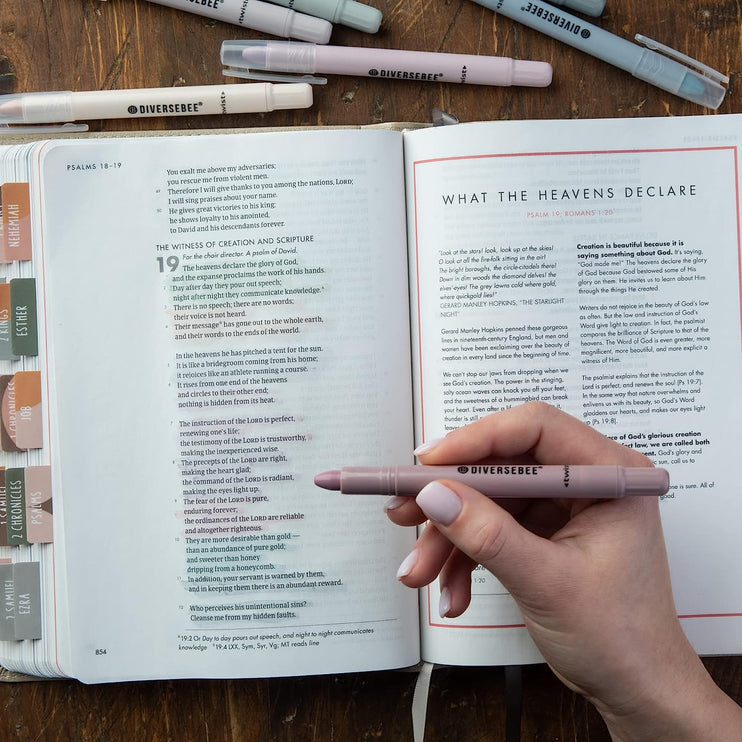 DIVERSEBEE®
twist
DIVERSEBEE®
twist
DIVERSEBEE®
twist
DIVERSEBEE®
PSALMS 18–19
You exalt me above my adversaries;
you rescue me from violent men.
49 Therefore I will give thanks to you among the nations, LORD;
I will sing praises about your name.
50 He gives great victories to his king;
he shows loyalty to his anointed,
to David and his descendants forever.
THE WITNESS OF CREATION AND SCRIPTURE
For the choir director. A psalm of David.
19 The heavens declare the glory of God,
and the expanse proclaims the work of his hands.
2 Day after day they pour out speech;
night after night they communicate knowledge.ᴬ
3 There is no speech; there are no words;
their voice is not heard.
4 Their messageᴮ has gone out to the whole earth,
and their words to the ends of the world.
In the heavens he has pitched a tent for the sun.
5 It is like a bridegroom coming from his home;
it rejoices like an athlete running a course.
6 It rises from one end of the heavens
and circles to their other end;
nothing is hidden from its heat.
7 The instruction of the LORD is perfect,
renewing one's life;
the testimony of the LORD is trustworthy,
making the inexperienced wise.
8 The precepts of the LORD are right,
making the heart glad;
the command of the LORD is radiant,
making the eyes light up.
9 The fear of the LORD is pure,
enduring forever;
the ordinances of the LORD are reliable
and altogether righteous.
10 They are more desirable than gold —
than an abundance of pure gold;
and sweeter than honey
dripping from a honeycomb.
11 In addition, your servant is warned by them,
and in keeping them there is an abundant reward.
12 Who perceives his unintentional sins?
Cleanse me from my hidden faults.
ᴬ 19:2 Or Day to day pours out speech, and night to night communicates
knowledge ᴮ 19:4 LXX, Sym, Syr, Vg; MT reads line
854
NEHEMIAH
2 KINGS
ESTHER
1 CHRONICLES
JOB
1 SAMUEL
2 CHRONICLES
PSALMS
2 SAMUEL
EZRA
WHAT THE HEAVENS DECLARE
PSALM 19; ROMANS 1:20
"Look at the stars! look, look up at the skies!
O look at all the fire-folk sitting in the air!
The bright boroughs, the circle-citadels there!
Down in dim woods the diamond delves! the
elves'-eyes! The grey lawns cold where gold,
where quickgold lies!"
GERARD MANLEY HOPKINS, "THE STARLIGHT
NIGHT"
Gerard Manley Hopkins penned these gorgeous
lines in nineteenth-century England, but men and
women have been exclaiming over the beauty of
creation in every land since the beginning of time.
We can't stop our jaws from dropping when we
see God's creation. The power in the stinging,
salty ocean waves can knock you off your feet,
and the sweetness of a hummingbird can break
your heart. Even after a
thunder is still
Creation is beautiful because it is
saying something about God. It's saying,
"God made me!" The heavens declare the glory
of God because God bestowed some of His
glory on them. He invites us to learn about Him
through the things He created.
Writers do not rejoice in the beauty of God's law
as often. But the law and instruction of God's
Word give light to creation. In fact, the psalmist
compares the brilliance of Scripture to that of the
heavens. The Word of God is even greater, more
magnificent, more beautiful, and more explicit a
witness of Him.
The psalmist explains that the instruction of the
Lord is perfect, and renews the soul [Ps 19:7].
In the same way that nature overwhelms and
enlivens us with its beauty, so God's Word
gladdens our hearts, and makes our eyes light
up [Ps 19:8].
of God's glorious creation
perfect law, we are called both
God's glory and
sun, call us to
one is sure. All of
good.
DIVERSEBEE®
twist
1:20